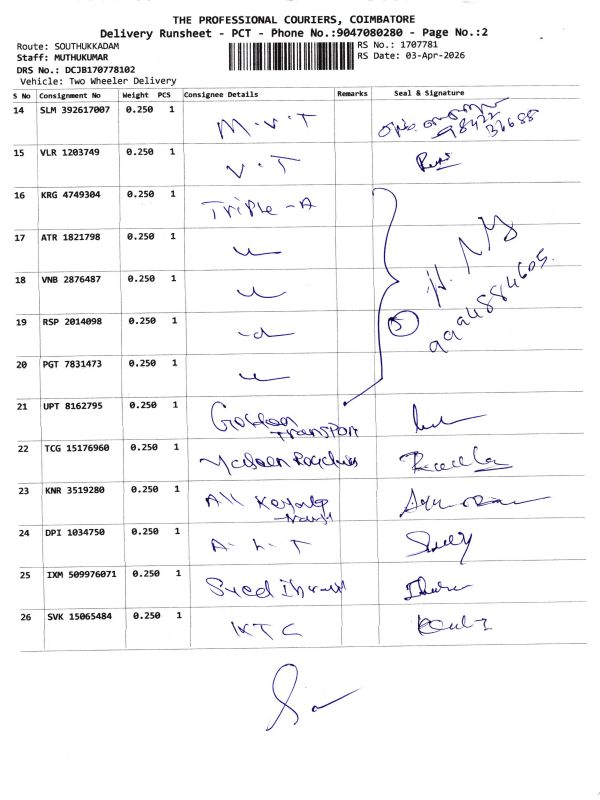 THE PROFESSIONAL COURIERS, COIMBATORE
Delivery Runsheet - PCT - Phone No.:9047080280 - Page No.:2
Route: SOUTHUKKADAM
RS No.: 1707781
Staff: MUTHUKUMAR
RS Date: 03-Apr-2026
DRS No.: DCJB170778102
Vehicle: Two Wheeler Delivery
S No Consignment No Weight PCS Consignee Details Remarks Seal & Signature
14 SLM 392617007 0.250 1 M.V.T 98422 32688
15 VLR 1203749 0.250 1 V.T
16 KRG 4749304 0.250 1 Triple-A
17 ATR 1821798 0.250 1
18 VNB 2876487 0.250 1
19 RSP 2014098 0.250 1 5 9994884605
20 PGT 7831473 0.250 1
21 UPT 8162795 0.250 1 Transport
22 TCG 15176960 0.250 1
23 KNR 3519280 0.250 1 All
24 DPI 1034750 0.250 1
25 IXM 509976071 0.250 1 Syed
26 SVK 15065484 0.250 1 KTC